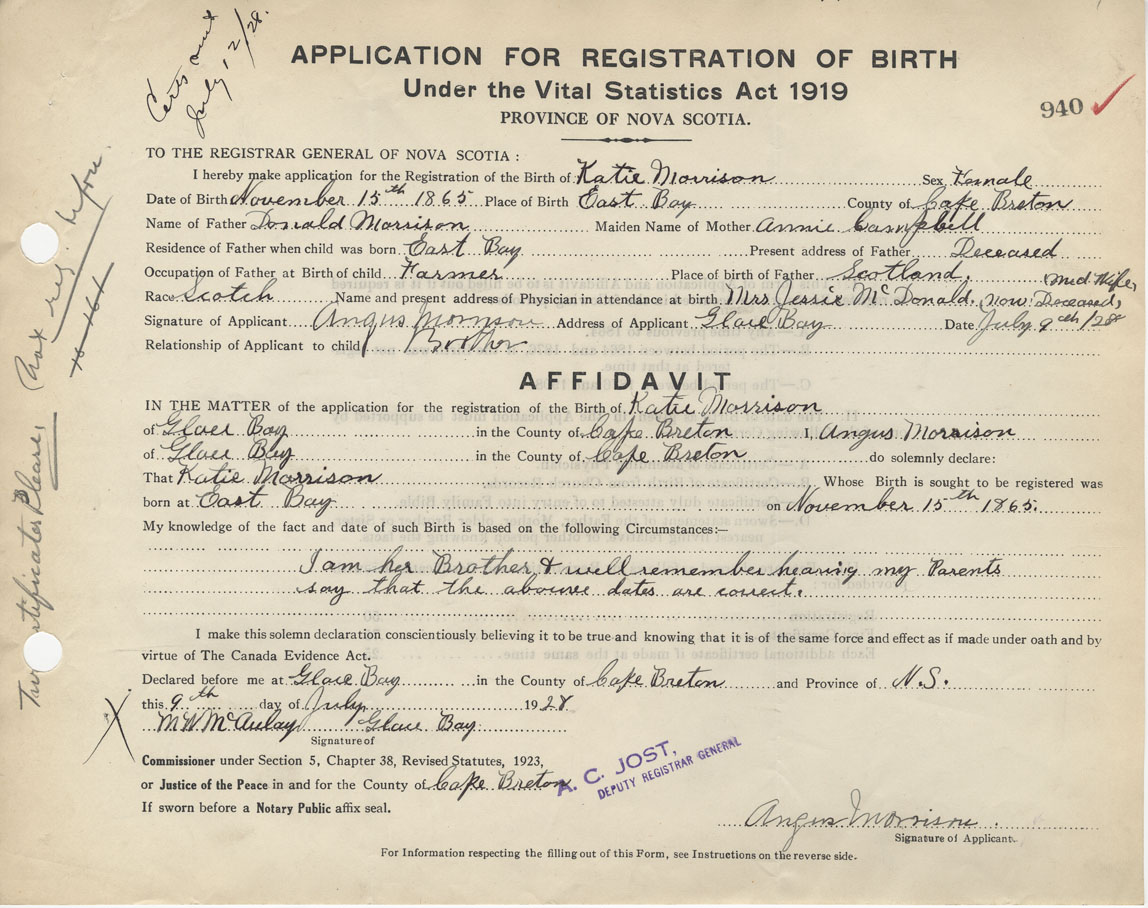 Certs out
July 12/28.
APPLICATION FOR REGISTRATION OF BIRTH
Under the Vital Statistics Act 1919
PROVINCE OF NOVA SCOTIA.
940
TO THE REGISTRAR GENERAL OF NOVA SCOTIA :
I hereby make application for the Registration of the Birth of Katie Morrison Sex Female
Date of Birth November 15th 1865 Place of Birth East Bay County of Cape Breton
Name of Father Donald Morrison Maiden Name of Mother Annie Campbell
Residence of Father when child was born East Bay Present address of Father Deceased
Occupation of Father at Birth of child Farmer Place of birth of Father Scotland.
Race Scotch Name and present address of Physician in attendance at birth Mrs Jessie McDonald. Mid Wife, now Deceased,
Signature of Applicant Angus Morrison Address of Applicant Glace Bay Date July 9th/28
Relationship of Applicant to child Brother
AFFIDAVIT
IN THE MATTER of the application for the registration of the Birth of Katie Morrison
of Glace Bay in the County of Cape Breton I, Angus Morrison
of Glace Bay in the County of Cape Breton do solemnly declare:
That Katie Morrison Whose Birth is sought to be registered was
born at East Bay on November 15th 1865.
My knowledge of the fact and date of such Birth is based on the following Circumstances:—
I am her Brother & well remember hearing my Parents
say that the abouve dates are correct.
I make this solemn declaration conscientiously believing it to be true and knowing that it is of the same force and effect as if made under oath and by
virtue of The Canada Evidence Act.
Declared before me at Glace Bay in the County of Cape Breton and Province of N.S.
this 9th day of July 1928
M W McAulay Glace Bay
Signature of
Commissioner under Section 5, Chapter 38, Revised Statutes, 1923,
or Justice of the Peace in and for the County of Cape Breton
If sworn before a Notary Public affix seal.
A. C. JOST,
DEPUTY REGISTRAR GENERAL
Angus Morrison
Signature of Applicant.
For Information respecting the filling out of this Form, see Instructions on the reverse side.
Please,